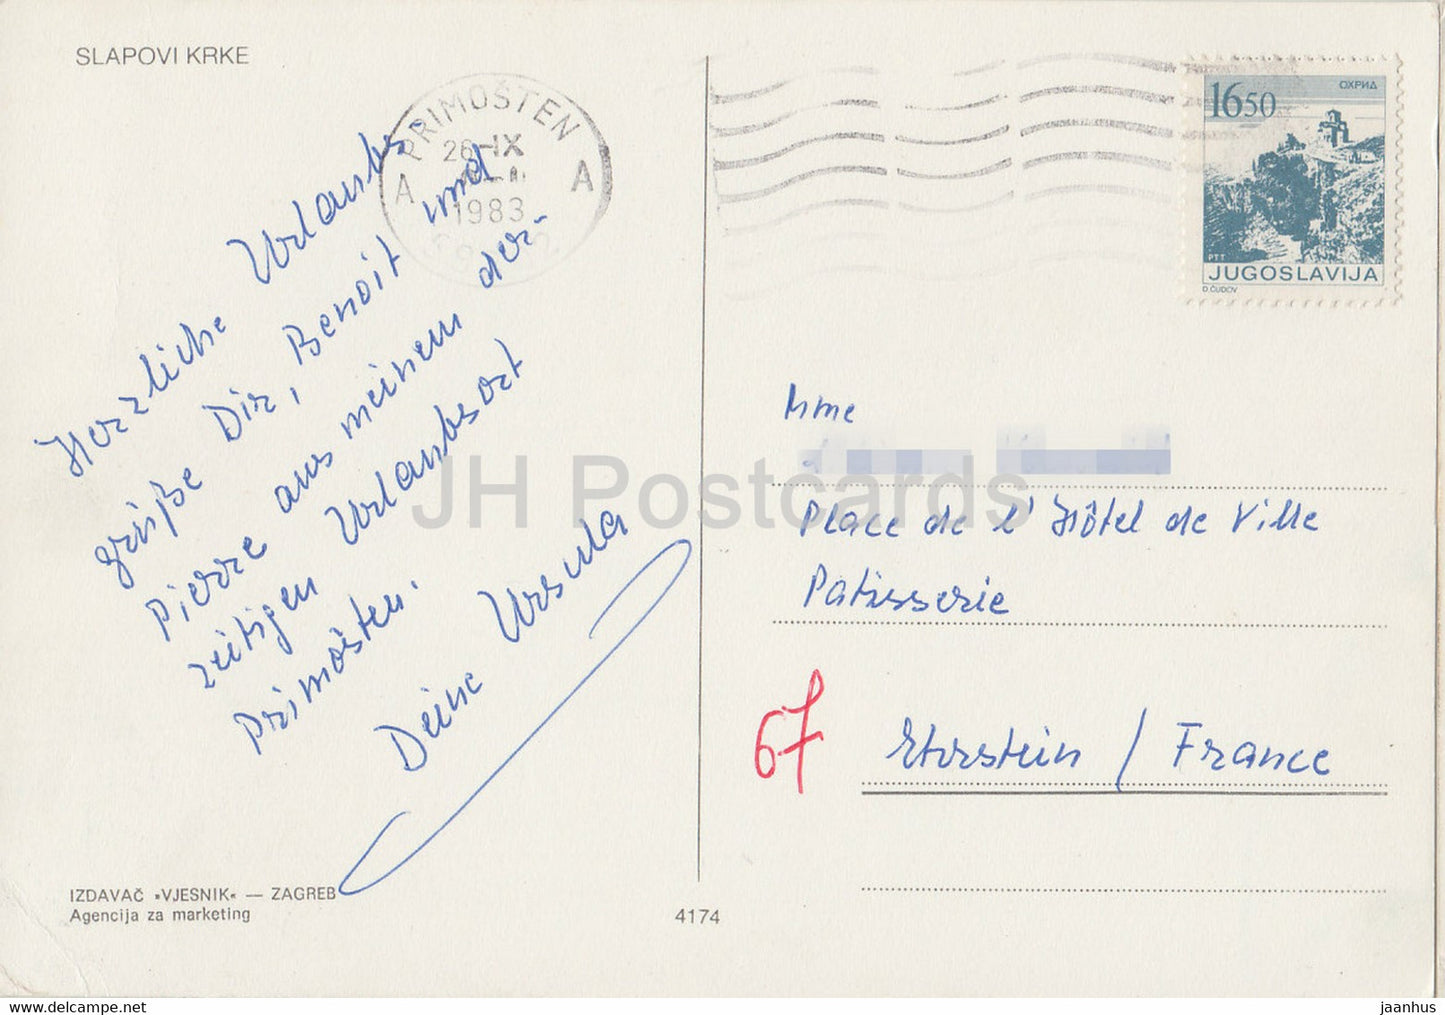 SLAPOVI KRKE
PRIMOŠTEN
26-IX
1983
A A
16 50
ОХРИД
PTT
JUGOSLAVIJA
D.ČUDOV
Herzliche Urlaubs-
grüße Dir, Benoit und
Pierre aus meinem der-
zeitigen Urlaubsort
Primošten.
Deine Ursula
Mme
Place de l'Hôtel de Ville
Patisserie
67
Erstein / France
JH Postcards
IZDAVAČ »VJESNIK« — ZAGREB
Agencija za marketing
4174
www.delcampe.net
jaanhus